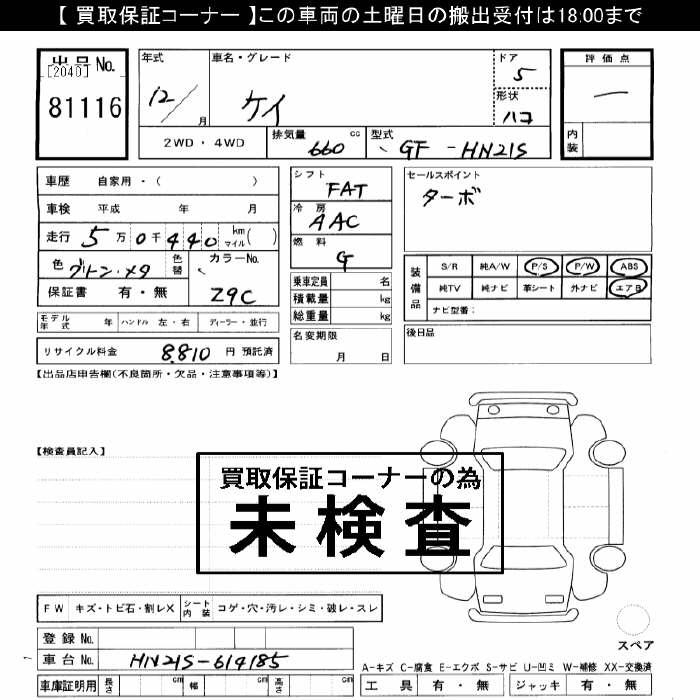 【 買取保証コーナー 】この車両の土曜日の搬出受付は18:00まで
出品 No.
[2040]
81116
年式
12/
月
車名・グレード
ケイ
ドア
5
形状
ハコ
評価点
—
内装
2WD・4WD
排気量
660
cc
型式
GF - HN21S
車歴 自家用・( )
車検 平成 年 月
走行 5万0千440 km マイル( )
色 グリーン・メタ
色替
カラーNo.
Z9C
保証書 有・無
シフト
FAT
冷房
AAC
燃料
G
乗車定員 名
積載量 kg
総重量 kg
セールスポイント
ターボ
装備品
S/R 純A/W P/S P/W ABS
純TV 純ナビ 革シート 外ナビ エアB
ナビ型番:
モデル年式 年 ハンドル 左・右 ディーラー・並行
名変期限
月 日
後日品
リサイクル料金 8,810 円 預託済
【出品店申告欄(不良箇所・欠品・注意事項等)】
【検査員記入】
買取保証コーナーの為
未検査
FW キズ・トビ石・割レX シート内装 コゲ・穴・汚レ・シミ・破レ・スレ
スペア
登録 No.
車台 No. HN21S-614185
A-キズ C-腐食 E-エクボ S-サビ U-凹ミ W-補修 XX-交換済
車庫証明用 長さ cm 幅 cm 高さ cm
工具 有・無 ジャッキ 有・無